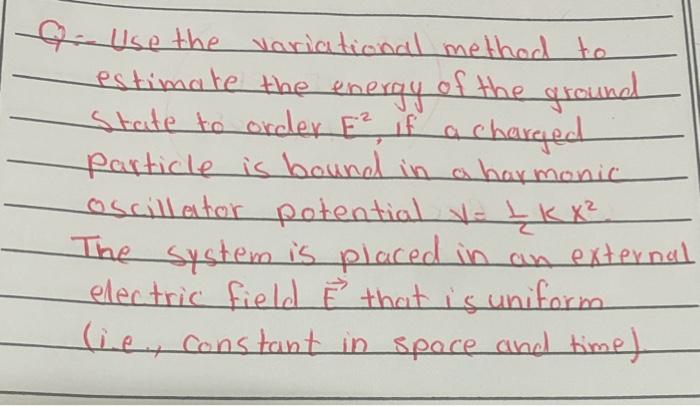 Q:- Use the variational method to
estimate the energy of the ground
state to order E², if a charged
particle is bound in a harmonic
oscillator potential V= 1/2 K X².
The system is placed in an external
electric field E⃗ that is uniform
(i.e., constant in space and time)